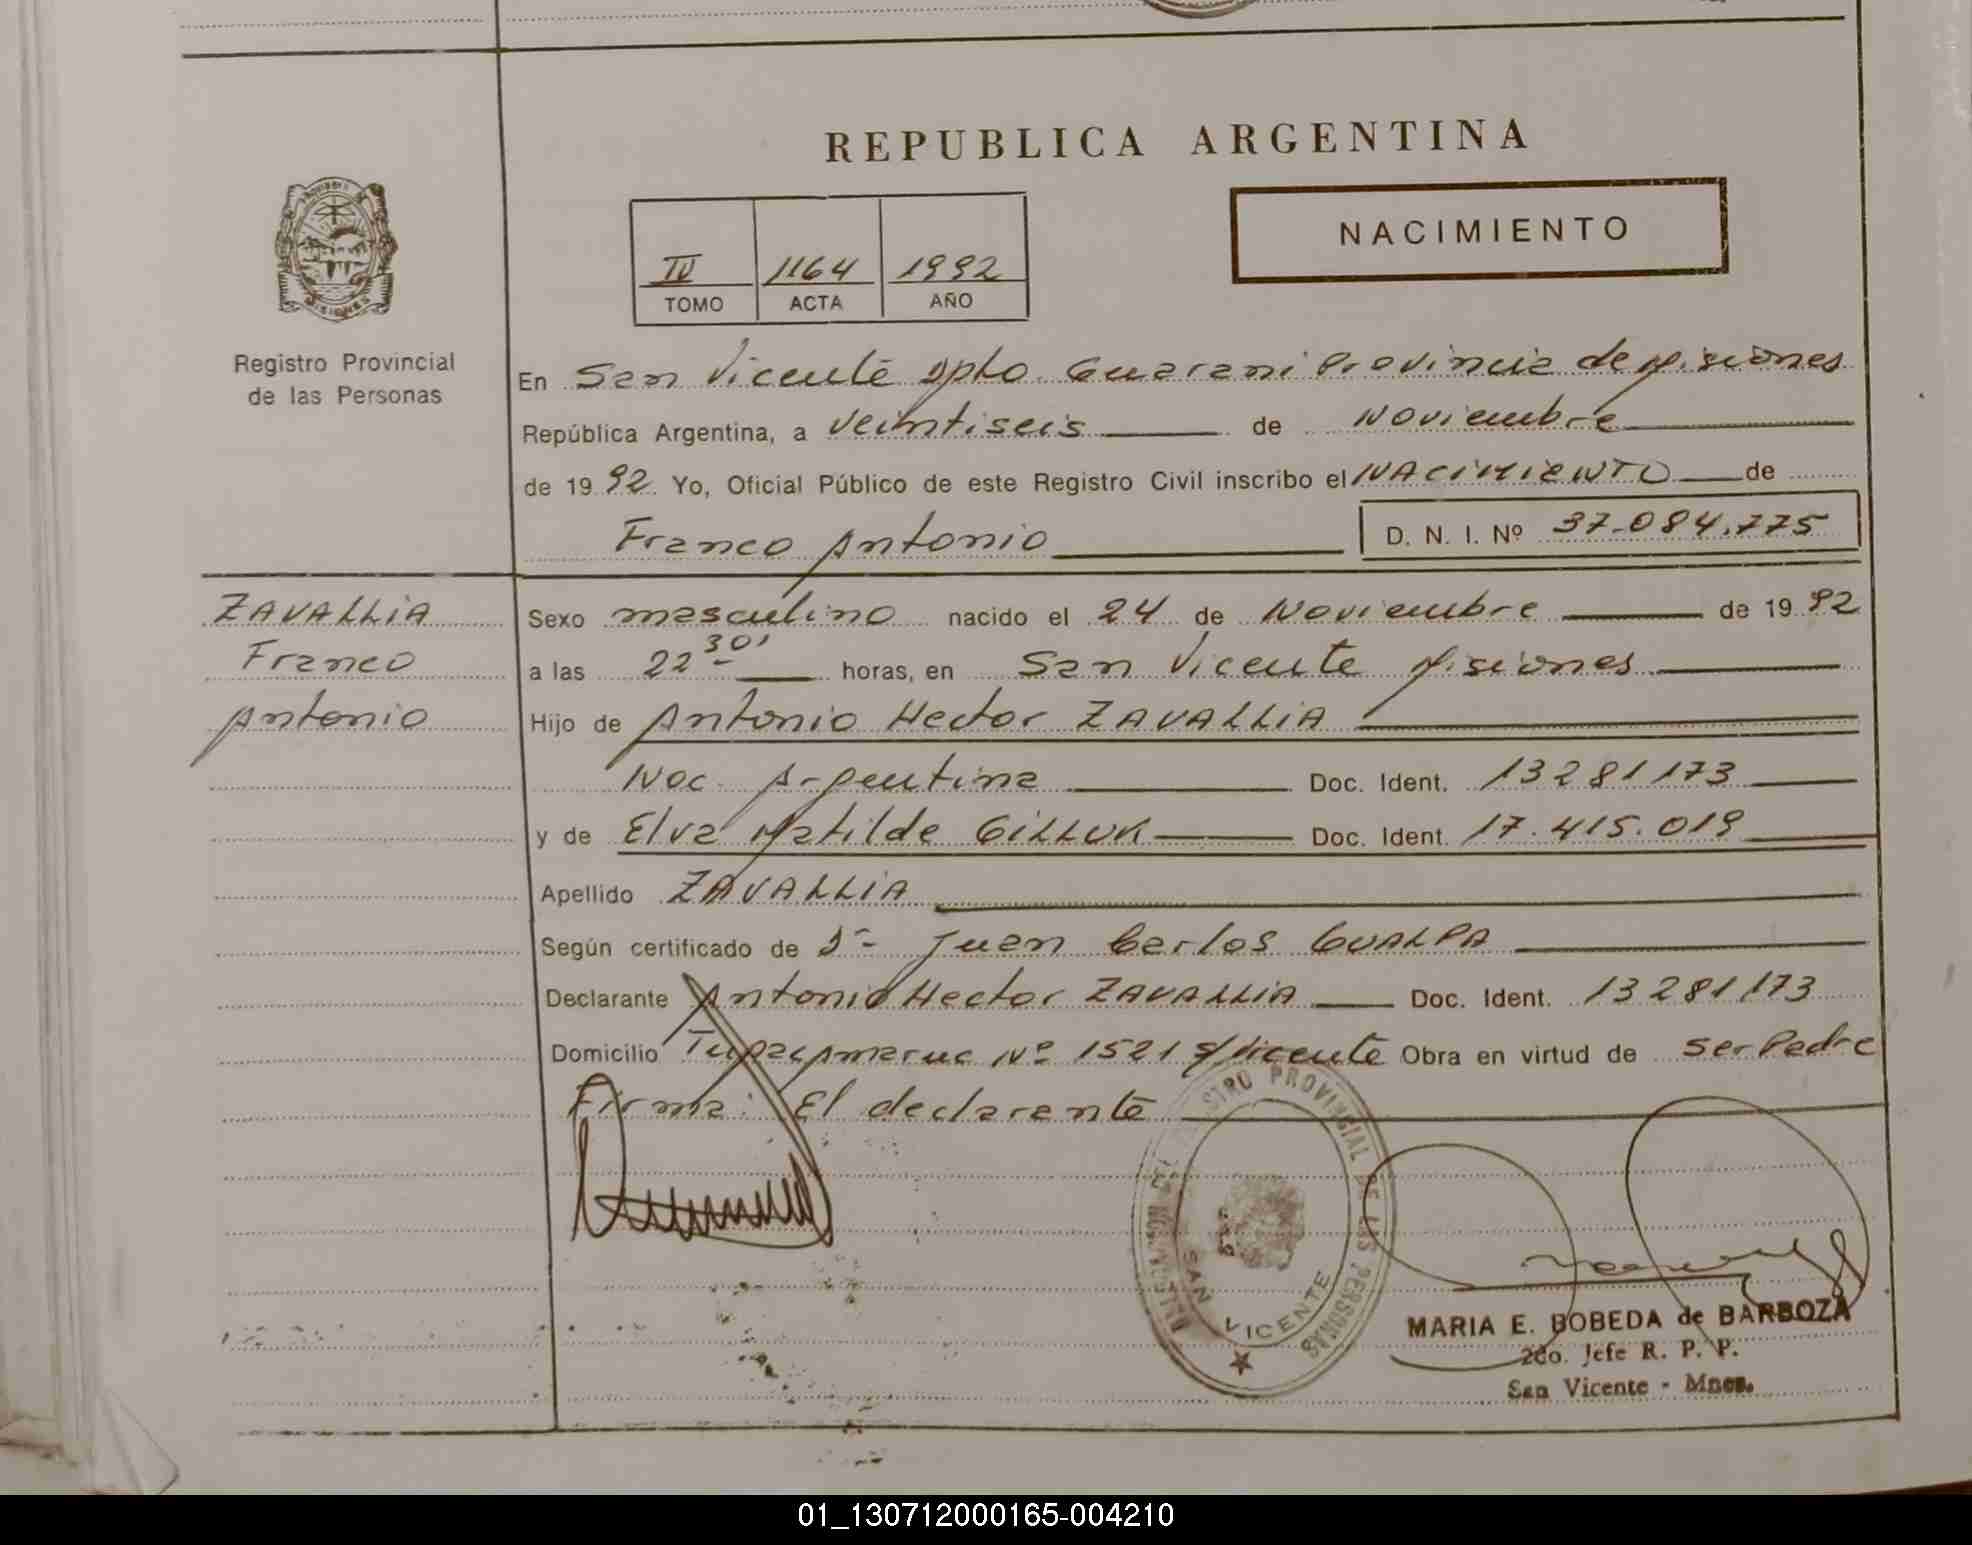 REPUBLICA ARGENTINA
NACIMIENTO
IV 1164 1992
TOMO ACTA AÑO
MISIONES
Registro Provincial
de las Personas
En San Vicente Dpto. Guarani Provincia de Misiones
República Argentina, a veintiseis de Noviembre
de 1992. Yo, Oficial Público de este Registro Civil inscribo el NACIMIENTO de
Franco Antonio D. N. I. Nº 37.084.775
ZAVALLIA
Franco
Antonio
Sexo masculino nacido el 24 de Noviembre de 1992
a las 22 30' horas, en San Vicente Misiones
Hijo de Antonio Hector ZAVALLIA
Nac. Argentina Doc. Ident. 13281173
y de Elva Matilde GILLUK Doc. Ident. 17.415.019
Apellido ZAVALLIA
Según certificado de Dr Juan Carlos GUALPA
Declarante Antonio Hector ZAVALLIA Doc. Ident. 13281173
Domicilio Tupac Amaruc Nº 1521 S/Vicente Obra en virtud de ser Padre
Firma: El declarante
REGISTRO PROVINCIAL DE LAS PERSONAS
SAN VICENTE
MARIA E. BOBEDA de BARBOZA
2do. Jefe R. P. P.
San Vicente - Mnes.
01_130712000165-004210